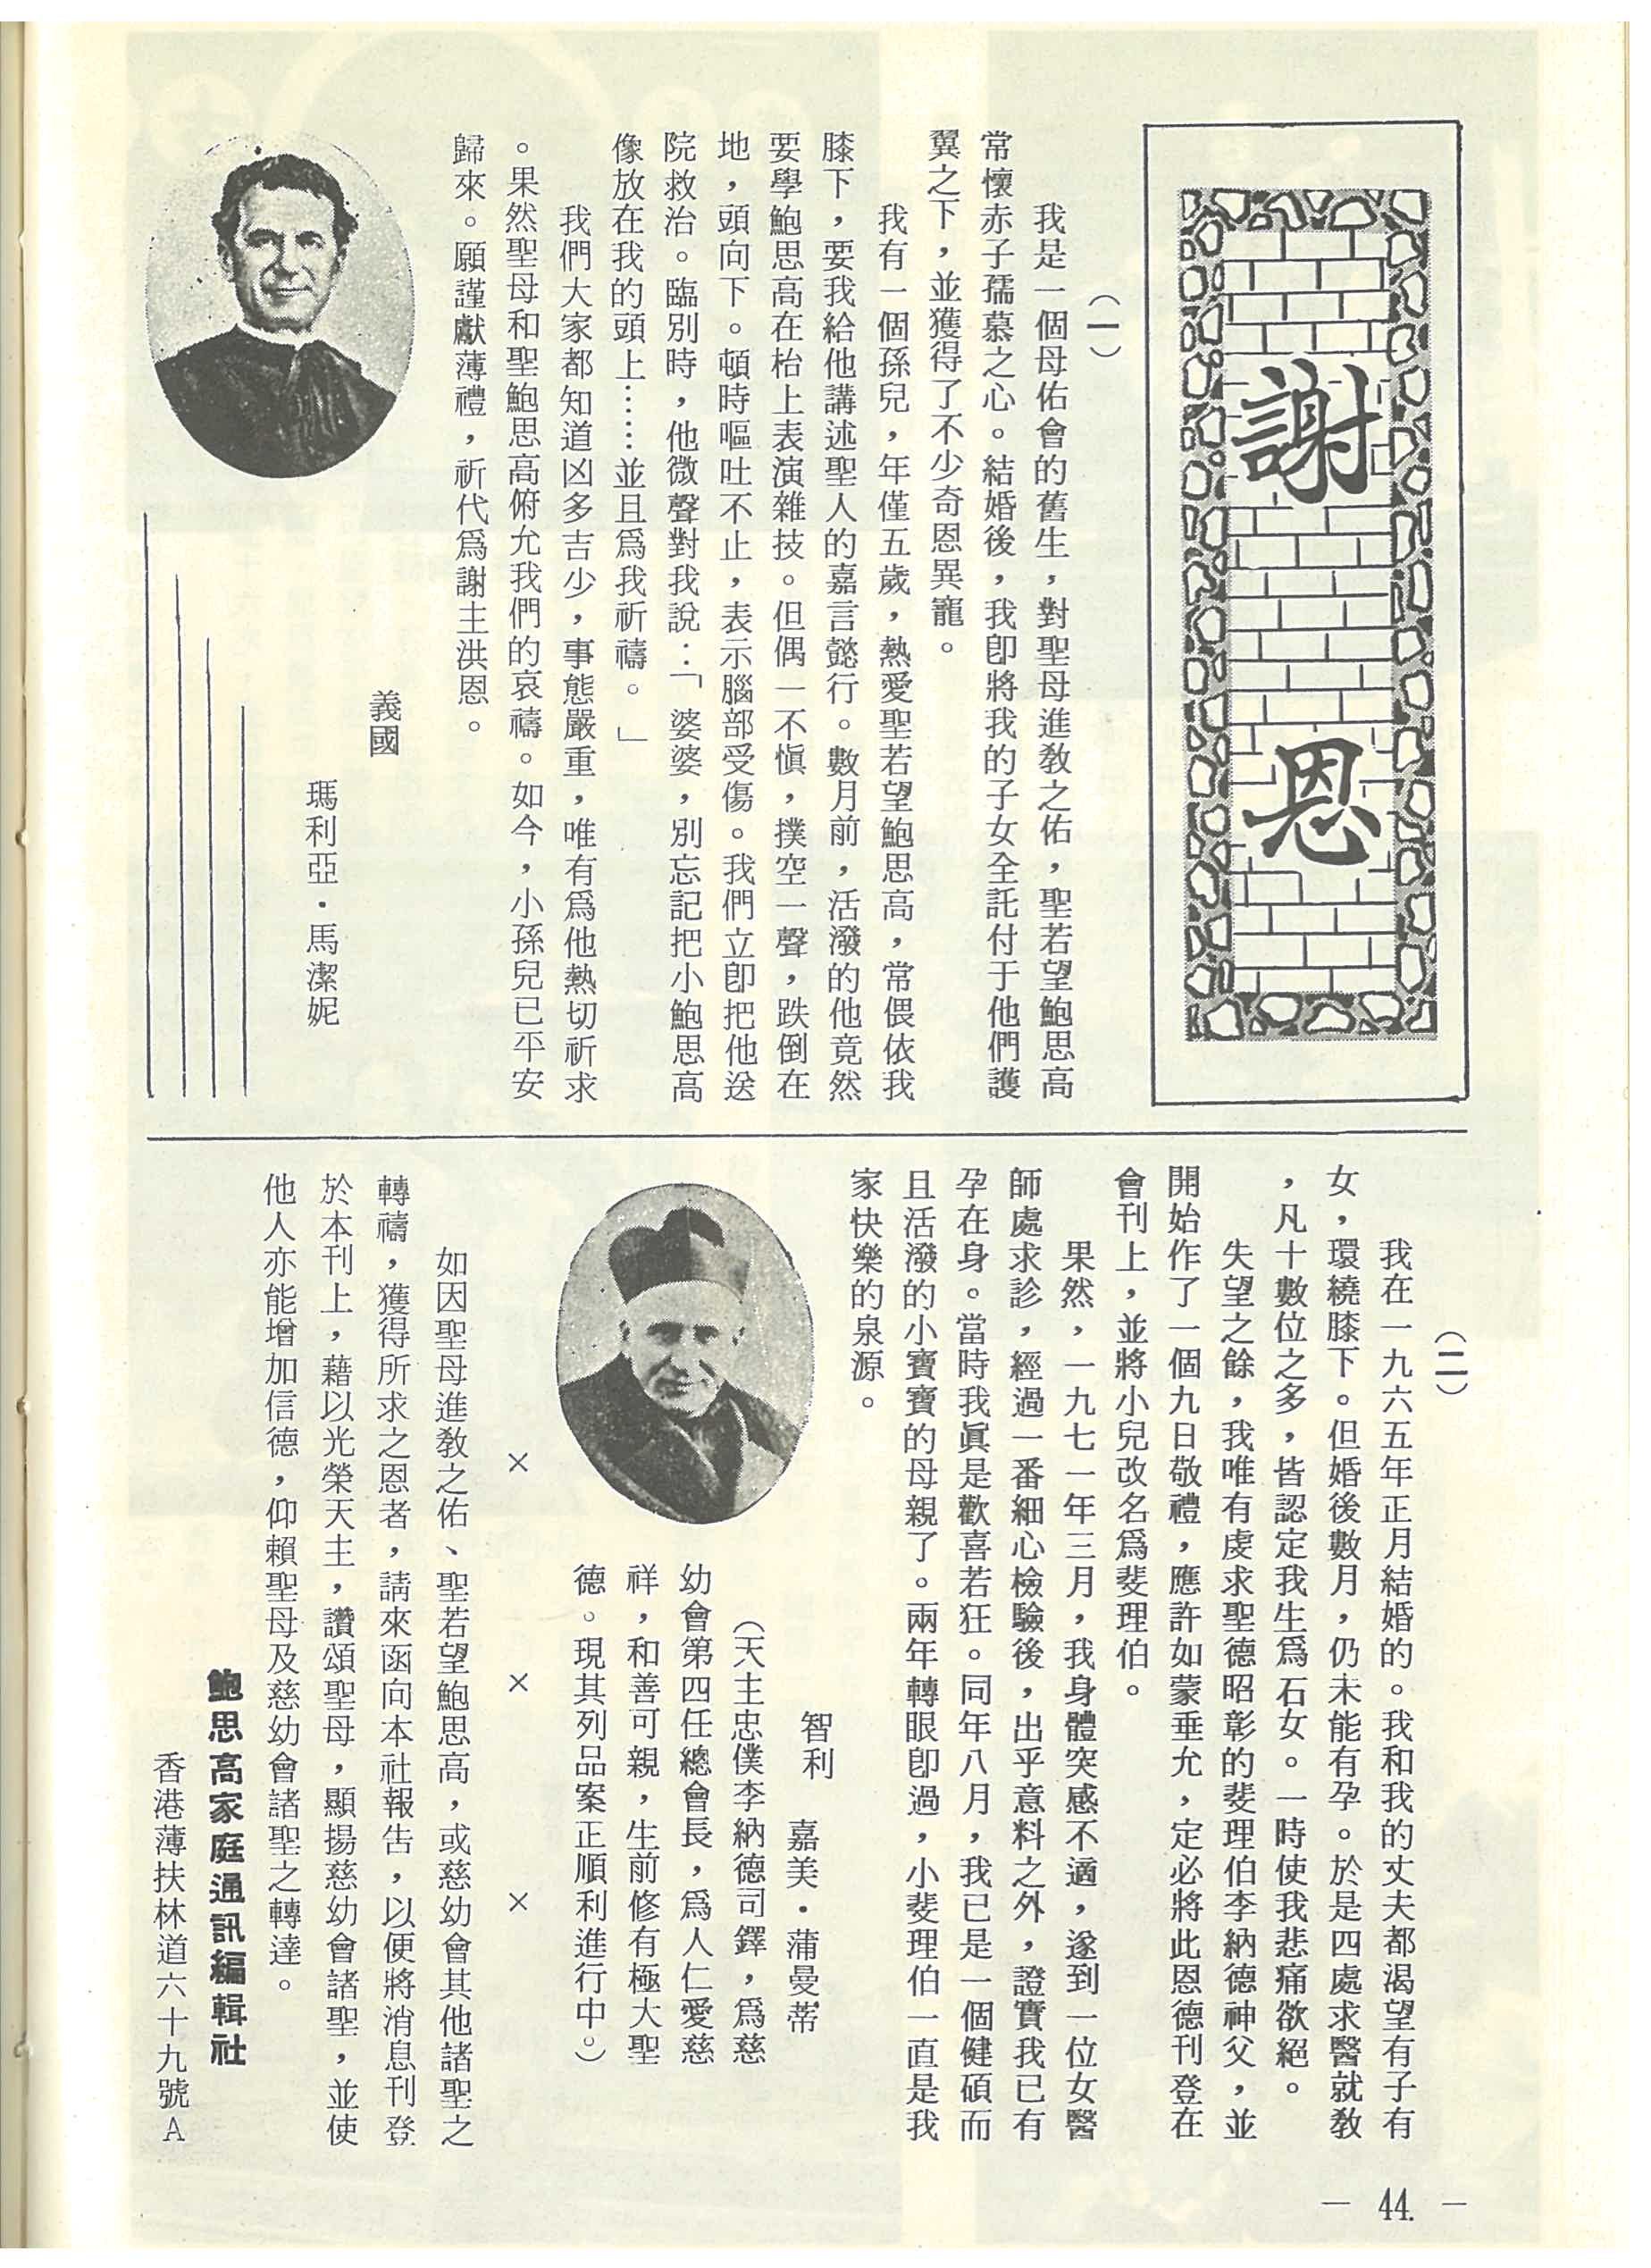 謝恩
（一）
我是一個母佑會的舊生，對聖母進教之佑，聖若望鮑思高
常懷赤子孺慕之心。結婚後，我卽將我的子女全託付于他們護
翼之下，並獲得了不少奇恩異寵。
我有一個孫兒，年僅五歲，熱愛聖若望鮑思高，常偎依我
膝下，要我給他講述聖人的嘉言懿行。數月前，活潑的他竟然
要學鮑思高在枱上表演雜技。但偶一不愼，撲空一聲，跌倒在
地，頭向下。頓時嘔吐不止，表示腦部受傷。我們立卽把他送
院救治。臨別時，他微聲對我說：「婆婆，別忘記把小鮑思高
像放在我的頭上……並且爲我祈禱。」
我們大家都知道凶多吉少，事態嚴重，唯有爲他熱切祈求
。果然聖母和聖鮑思高俯允我們的哀禱。如今，小孫兒已平安
歸來。願謹獻薄禮，祈代爲謝主洪恩。
義國
瑪利亞・馬潔妮
（二）
我在一九六五年正月結婚的。我和我的丈夫都渴望有子有
女，環繞膝下。但婚後數月，仍未能有孕。於是四處求醫就教
，凡十數位之多，皆認定我生爲石女。一時使我悲痛欲絕。
失望之餘，我唯有虔求聖德昭彰的斐理伯李納德神父，並
開始作了一個九日敬禮，應許如蒙垂允，定必將此恩德刊登在
會刊上，並將小兒改名爲斐理伯。
果然，一九七一年三月，我身體突感不適，遂到一位女醫
師處求診，經過一番細心檢驗後，出乎意料之外，證實我已有
孕在身。當時我眞是歡喜若狂。同年八月，我已是一個健碩而
且活潑的小寶寶的母親了。兩年轉眼卽過，小斐理伯一直是我
家快樂的泉源。
智利　嘉美・蒲曼蒂
（天主忠僕李納德司鐸，爲慈
幼會第四任總會長，爲人仁愛慈
祥，和善可親，生前修有極大聖
德。現其列品案正順利進行中。）
×　×　×
如因聖母進教之佑、聖若望鮑思高，或慈幼會其他諸聖之
轉禱，獲得所求之恩者，請來函向本社報告，以便將消息刊登
於本刊上，藉以光榮天主，讚頌聖母，顯揚慈幼會諸聖，並使
他人亦能增加信德，仰賴聖母及慈幼會諸聖之轉達。
鮑思高家庭通訊編輯社
香港薄扶林道六十九號A
— 44. —